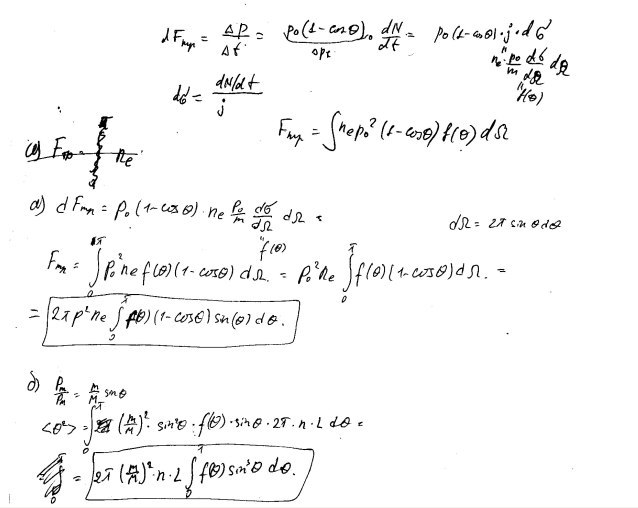 dF_тр = Δp/Δt = p₀(1-cosθ)/Δp₁ · dN/dt = p₀(1-cosθ)·j·dσ
n_e · p₀/m dσ/dΩ dΩ
" f(θ)
dσ = dN/dt / j
F_тр = ∫ n_e p₀² (1-cosθ) f(θ) dΩ
n_e
a) dF_тр = p₀(1-cosθ)·n_e p₀/m dσ/dΩ dΩ =
" f(θ)
dΩ = 2π sinθdθ
F_тр = ∫₀^π p₀² n_e f(θ)(1-cosθ) dΩ. = p₀² n_e ∫₀^π f(θ)(1-cosθ) dΩ. =
= 2π p² n_e ∫₀^π f(θ)(1-cosθ) sin(θ) dθ.
б) P_m/P_M = m/M sinθ
<θ²> = ∫₀^π (m/M)² · sin²θ · f(θ)·sinθ · 2π · n · L dθ =
= 2π (m/M)²·n·L ∫₀^π f(θ) sin³θ dθ.